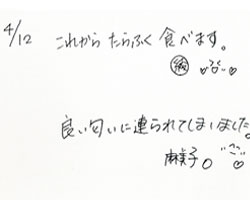 4/12
これから たらふく 食べます。
良い匂いに連られてしまいました。
麻美子